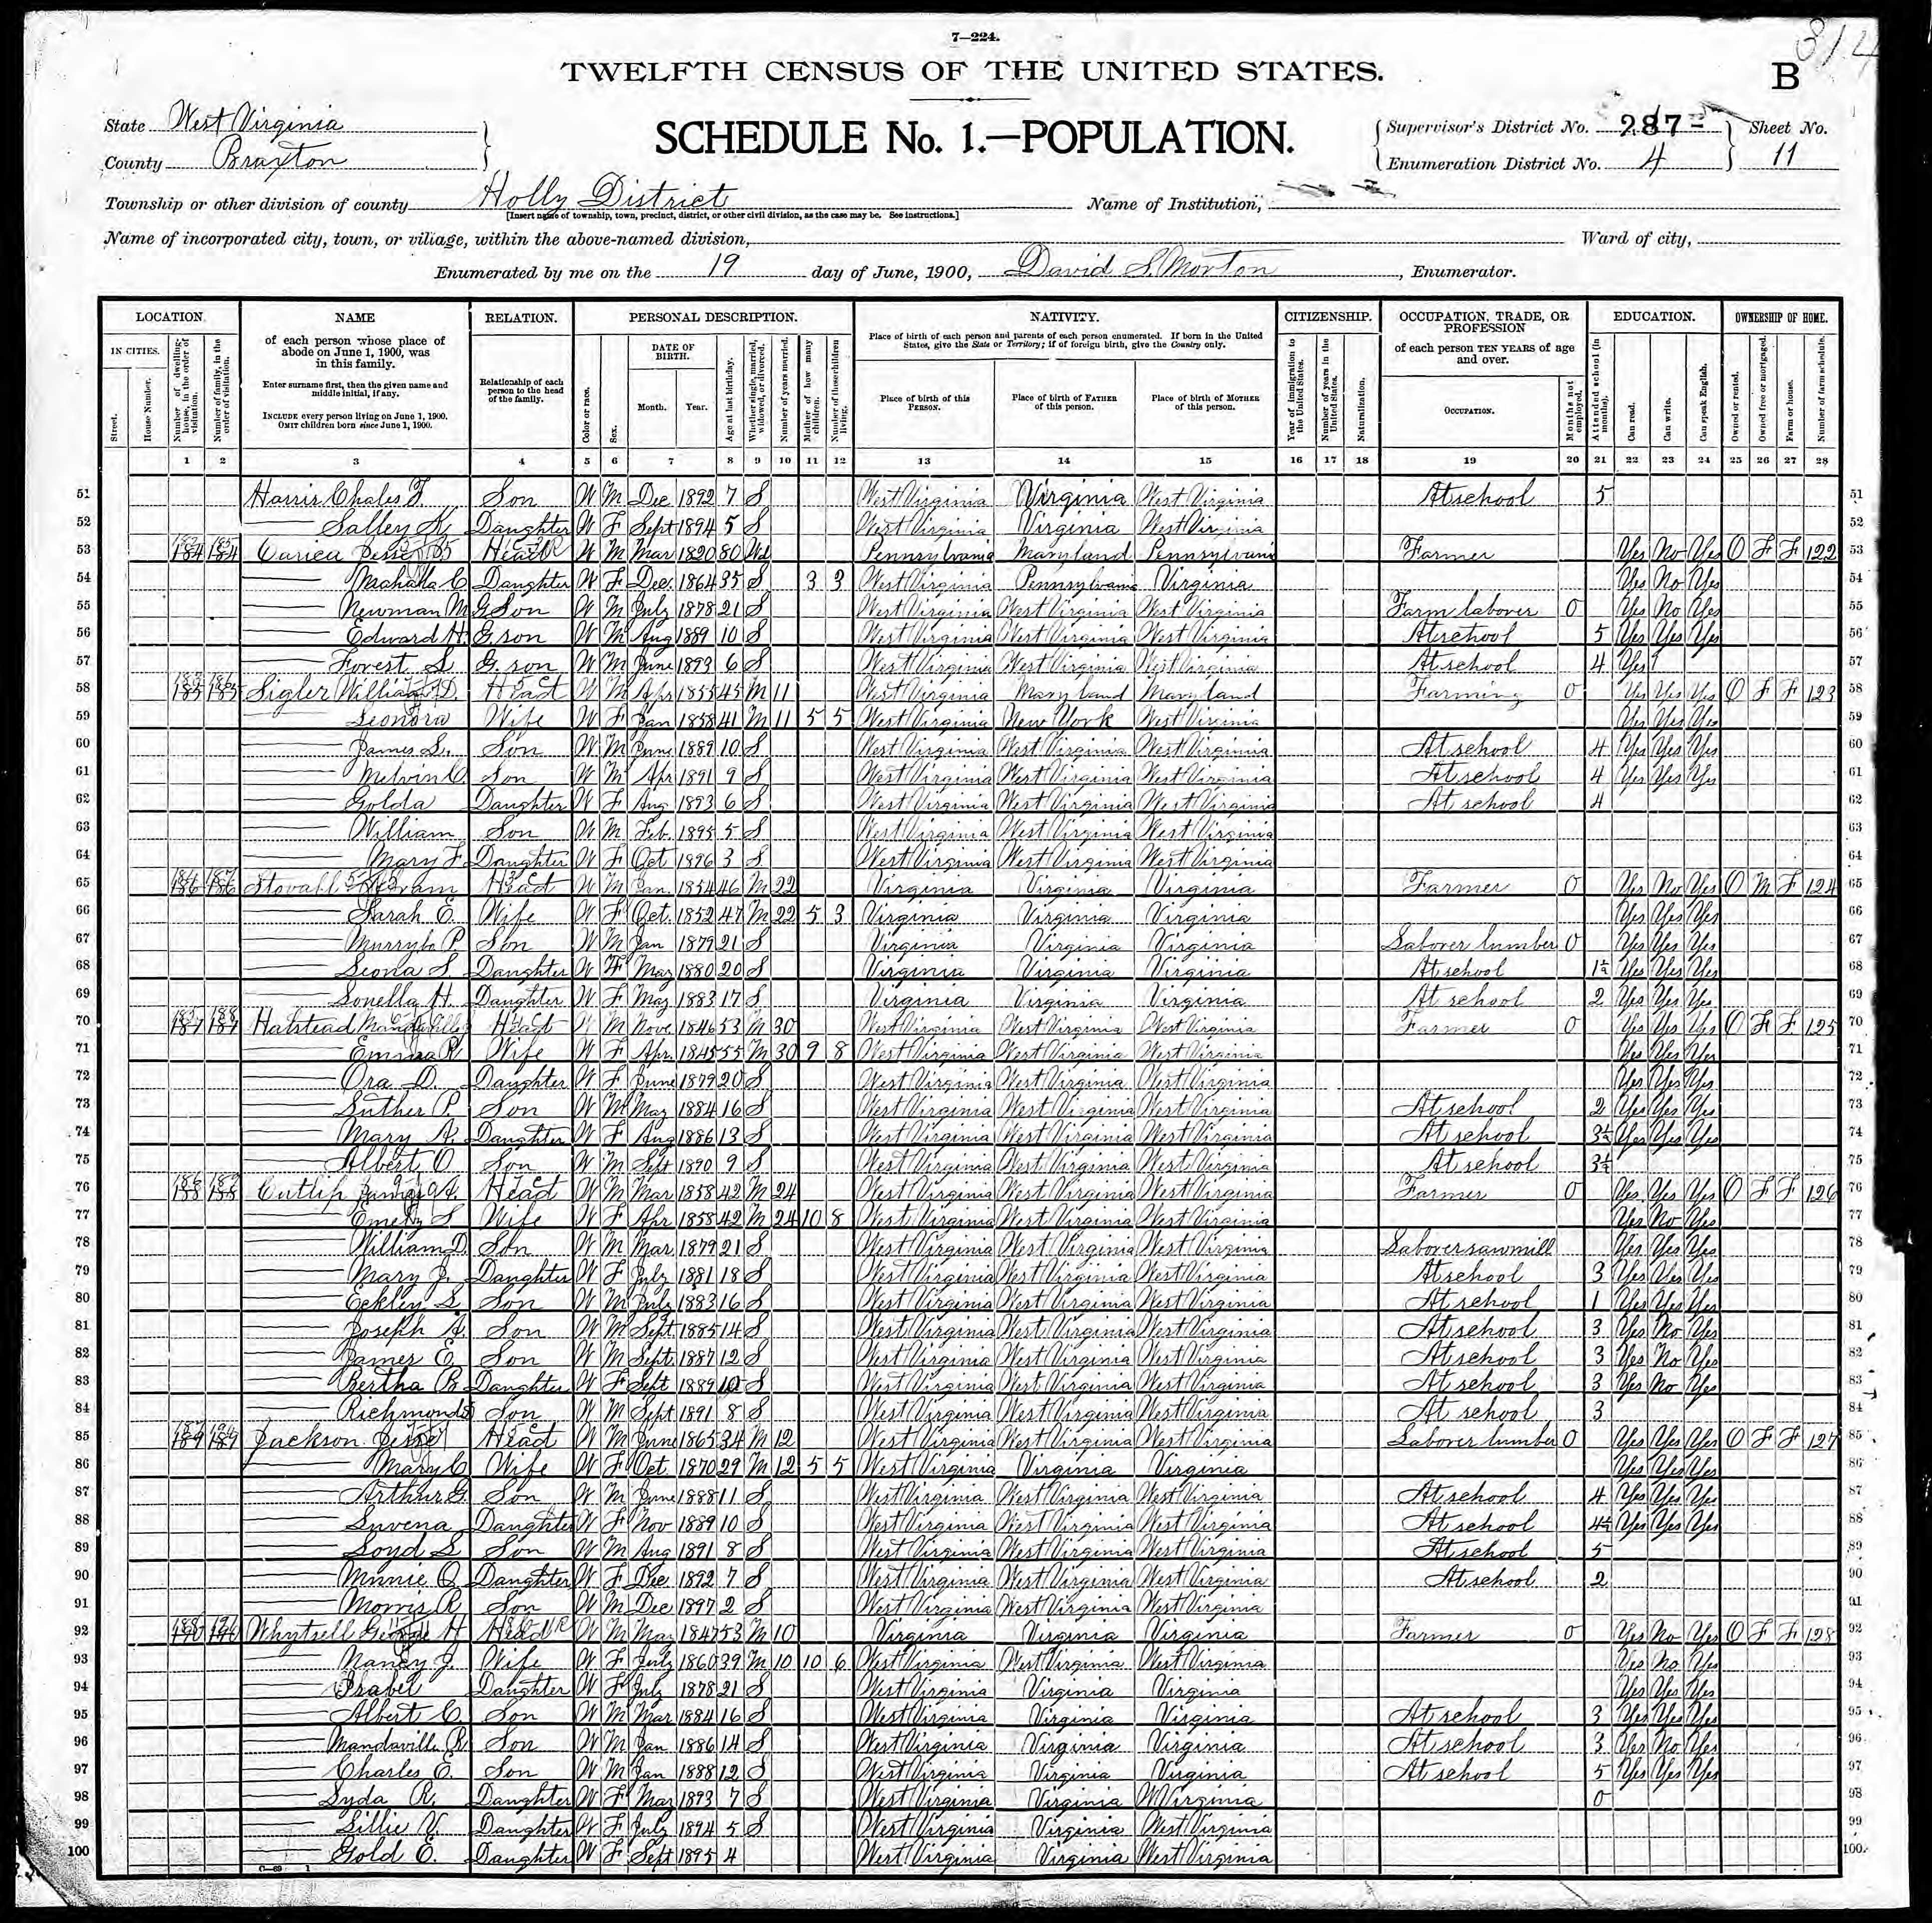 7—224.
TWELFTH CENSUS OF THE UNITED STATES.
B
State West Virginia
County Braxton
SCHEDULE No. 1.—POPULATION.
Supervisor's District No. 287
Enumeration District No. 4
Sheet No.
11
Township or other division of county Holly District
[Insert name of township, town, precinct, district, or other civil division, as the case may be. See instructions.]
Name of Institution,
Name of incorporated city, town, or village, within the above-named division,
Ward of city,
Enumerated by me on the 19 day of June, 1900, David S. Morton, Enumerator.
LOCATION. NAME RELATION. PERSONAL DESCRIPTION. NATIVITY. CITIZENSHIP. OCCUPATION, TRADE, OR PROFESSION EDUCATION. OWNERSHIP OF HOME.
IN CITIES.
Street.
House Number.
Number of dwelling-house, in the order of visitation.
Number of family, in the order of visitation.
of each person whose place of abode on June 1, 1900, was in this family.
Enter surname first, then the given name and middle initial, if any.
INCLUDE every person living on June 1, 1900.
OMIT children born since June 1, 1900.
Relationship of each person to the head of the family.
Color or race.
Sex.
DATE OF BIRTH.
Month. Year.
Age at last birthday.
Whether single, married, widowed, or divorced.
Number of years married.
Mother of how many children.
Number of these children living.
Place of birth of each person and parents of each person enumerated. If born in the United States, give the State or Territory; if of foreign birth, give the Country only.
Place of birth of this PERSON.
Place of birth of FATHER of this person.
Place of birth of MOTHER of this person.
Year of immigration to the United States.
Number of years in the United States.
Naturalization.
of each person TEN YEARS of age and over.
OCCUPATION.
Months not employed.
Attended school (in months).
Can read.
Can write.
Can speak English.
Owned or rented.
Owned free or mortgaged.
Farm or house.
Number of farm schedule.
1 2 3 4 5 6 7 8 9 10 11 12 13 14 15 16 17 18 19 20 21 22 23 24 25 26 27 28
51 Harris Chales F. Son W M Dec 1892 7 S West Virginia Virginia West Virginia At school 5 51
52 Salley Daughter W F Sept 1894 5 S West Virginia Virginia West Virginia 52
53 184 184 Carica Jesse Head W M Mar 1820 80 Wd Pennsylvania Maryland Pennsylvania Farmer Yes No Yes O F F 122 53
54 Mahalla C Daughter W F Dec. 1864 35 S 3 3 West Virginia Pennsylvania Virginia Yes No Yes 54
55 Newman M G Son W M July 1878 21 S West Virginia West Virginia West Virginia Farm laborer 0 Yes No Yes 55
56 Edward H. G. son W M Aug 1889 10 S West Virginia West Virginia West Virginia At school 5 Yes Yes Yes 56
57 Forest S. G. son W M June 1893 6 S West Virginia West Virginia West Virginia At school 4 Yes 57
58 185 185 Sigler William D. Head W M Apr 1855 45 M 11 West Virginia Maryland Maryland Farming 0 Yes Yes Yes O F F 123 58
59 Leonora Wife W F Jan 1858 41 M 11 5 5 West Virginia New York West Virginia Yes Yes Yes 59
60 James L. Son W M June 1889 10 S West Virginia West Virginia West Virginia At school 4 Yes Yes Yes 60
61 Melvin C. Son W M Apr 1891 9 S West Virginia West Virginia West Virginia At school 4 Yes Yes Yes 61
62 Golda Daughter W F Aug 1893 6 S West Virginia West Virginia West Virginia At school 4 62
63 William Son W M Feb. 1895 5 S West Virginia West Virginia West Virginia 63
64 Mary F. Daughter W F Oct 1896 3 S West Virginia West Virginia West Virginia 64
65 186 186 Stovall Head W M Jan. 1854 46 M 22 Virginia Virginia Virginia Farmer 0 Yes No Yes O M F 124 65
66 Sarah E. Wife W F Oct. 1852 47 M 22 5 3 Virginia Virginia Virginia Yes Yes Yes 66
67 P. Son W M Jan 1879 21 S Virginia Virginia Virginia Laborer lumber 0 Yes Yes Yes 67
68 Leona S. Daughter W F May 1880 20 S Virginia Virginia Virginia At school 1½ Yes Yes Yes 68
69 Lonella H. Daughter W F May 1883 17 S Virginia Virginia Virginia At school 2 Yes Yes Yes 69
70 187 187 Halstead Head W M Nov. 1846 53 M 30 West Virginia West Virginia West Virginia Farmer 0 Yes Yes Yes O F F 125 70
71 Emma R. Wife W F Apr. 1845 55 M 30 9 8 West Virginia West Virginia West Virginia Yes Yes Yes 71
72 Ora D. Daughter W F June 1879 20 S West Virginia West Virginia West Virginia Yes Yes Yes 72
73 Luther P. Son W M May 1884 16 S West Virginia West Virginia West Virginia At school 2 Yes Yes Yes 73
74 Mary A. Daughter W F Aug 1886 13 S West Virginia West Virginia West Virginia At school 3½ Yes Yes Yes 74
75 Albert O Son W M Sept 1890 9 S West Virginia West Virginia West Virginia At school 3½ 75
76 188 188 Cutlip James A. Head W M Mar 1858 42 M 24 West Virginia West Virginia West Virginia Farmer 0 Yes Yes Yes O F F 126 76
77 Emely S Wife W F Apr 1858 42 M 24 10 8 West Virginia West Virginia West Virginia Yes No Yes 77
78 William D. Son W M Mar 1879 21 S West Virginia West Virginia West Virginia Laborer sawmill Yes Yes Yes 78
79 Mary J. Daughter W F July 1881 18 S West Virginia West Virginia West Virginia At school 3 Yes Yes Yes 79
80 Eckley S. Son W M July 1883 16 S West Virginia West Virginia West Virginia At school 1 Yes Yes Yes 80
81 Joseph A. Son W M Sept. 1885 14 S West Virginia West Virginia West Virginia At school 3 Yes No Yes 81
82 James E. Son W M Sept. 1887 12 S West Virginia West Virginia West Virginia At school 3 Yes No Yes 82
83 Bertha B Daughter W F Sept 1889 10 S West Virginia West Virginia West Virginia At school 3 Yes No Yes 83
84 Richmond Son W M Sept 1891 8 S West Virginia West Virginia West Virginia At school 3 84
85 189 189 Jackson Jesse Head W M June 1865 34 M 12 West Virginia West Virginia West Virginia Laborer lumber 0 Yes Yes Yes O F F 127 85
86 Mary C Wife W F Oct. 1870 29 M 12 5 5 West Virginia Virginia Virginia Yes Yes Yes 86
87 Arthur G. Son W M June 1888 11 S West Virginia West Virginia West Virginia At school 4 Yes Yes Yes 87
88 Luvena Daughter W F Nov 1889 10 S West Virginia West Virginia West Virginia At school 4½ Yes Yes Yes 88
89 Loyd L Son W M Aug 1891 8 S West Virginia West Virginia West Virginia At school 5 89
90 Minnie O. Daughter W F Dec 1892 7 S West Virginia West Virginia West Virginia At school 2 90
91 Morris R. Son W M Dec 1897 2 S West Virginia West Virginia West Virginia 91
92 190 190 Whytsell George H Head W M Mar 1847 53 M 10 Virginia Virginia Virginia Farmer 0 Yes No Yes O F F 128 92
93 Nancy J. Wife W F July 1860 39 M 10 10 6 West Virginia West Virginia West Virginia Yes No Yes 93
94 Isabel Daughter W F July 1878 21 S West Virginia Virginia Virginia Yes Yes Yes 94
95 Albert C. Son W M Mar 1884 16 S West Virginia Virginia Virginia At school 3 Yes Yes Yes 95
96 Mandaville R. Son W M Jan 1886 14 S West Virginia Virginia Virginia At school 3 Yes No Yes 96
97 Charles E. Son W M Jan 1888 12 S West Virginia Virginia Virginia At school 5 Yes Yes Yes 97
98 Lyda R. Daughter W F Mar 1893 7 S West Virginia Virginia W Virginia 0 98
99 Lillie V. Daughter W F July 1894 5 S West Virginia Virginia West Virginia 99
100 Gold E. Daughter W F Sept 1895 4 West Virginia Virginia West Virginia 100